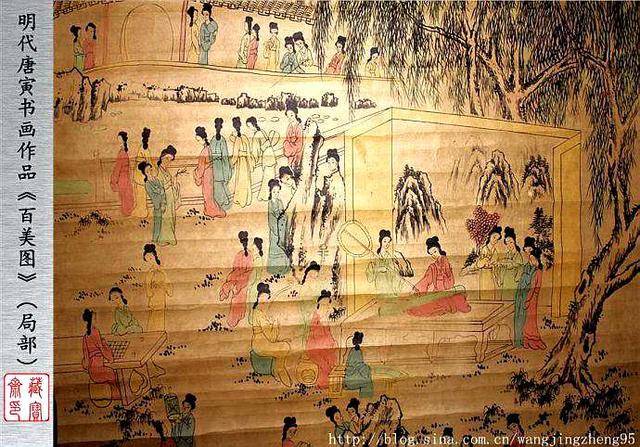 明代唐寅书画作品《百美图》（局部）
藏宝
斋印
http://blog.sina.com.cn/wangjingzheng95